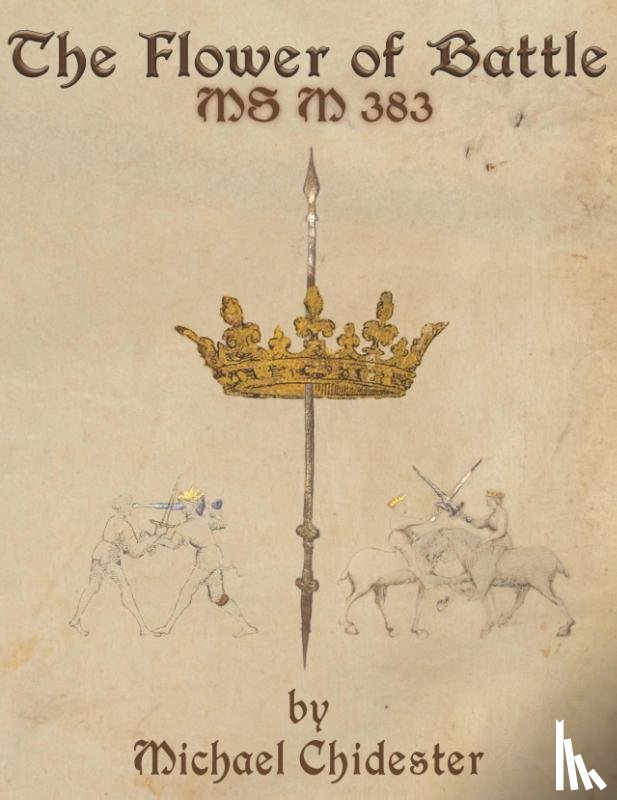 The Flower of Battle
MS M 383
by
Michael Chidester